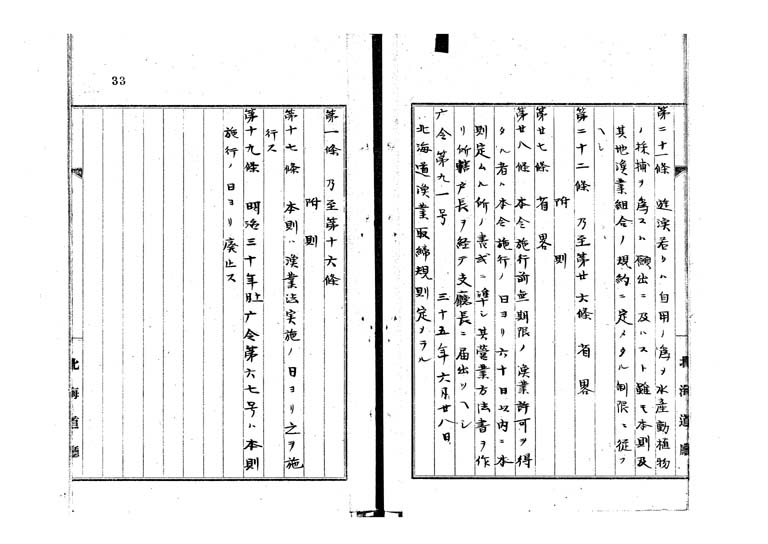 第二十一條 遊漁若クハ自用ノ為メ水産動植物
ノ採捕ヲ為スハ願出ニ及ハスト雖モ本則及
其地漁業組合ノ規約ニ定メタル制限ニ従フ
ヘシ
第二十二條 乃至第廿六條 省畧
第廿七條 省畧
附則
第廿八條 本令施行前無期限ノ漁業許可ヲ得
タル者ハ本令施行ノ日ヨリ六十日以内ニ本
則定ムル所ノ書式ニ準シ其営業方法書ヲ作
リ所轄戸長ヲ経テ支廳長ニ届出ツヘシ
庁令第九一号 三十五年六月廿八日
北海道漁業取締規則定メラル
北海道廳
第一條乃至第十六條
附則
第十七條 本則ハ漁業法実施ノ日ヨリ之ヲ施
行ス
第十九條 明治三十年庁令第六七号ハ本則
施行ノ日ヨリ廃止ス
北海道廳
33